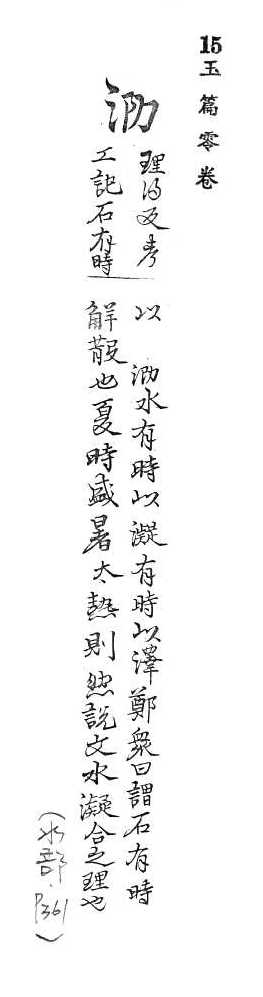 15玉篇零卷
泐
理得反考
工記石有時
以 泐水有時以凝有時以澤鄭衆曰謂石有時
解散也夏時盛暑太熱則然說文水凝合之理也
(水部.P361)